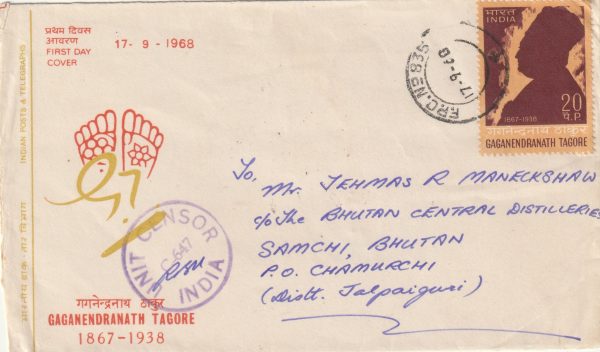 प्रथम दिवस
आवरण
FIRST DAY
COVER
17-9-1968
INDIAN POSTS & TELEGRAPHS
भारतीय डाक-तार विभाग
F.P.O. No 835
17-9-60
भारत
INDIA
1867-1938
20
P.P.
गगनेन्द्रनाथ ठाकुर
GAGANENDRANATH TAGORE
To,
Mr. JEHMAS R MANECKSHAW
c/o The BHUTAN CENTRAL DISTILLERIES
SAMCHI, BHUTAN
P.O. CHAMURCHI
(Distt. Jalpaiguri)
UNIT CENSOR
C-647
INDIA
गगनेन्द्रनाथ ठाकुर
GAGANENDRANATH TAGORE
1867-1938